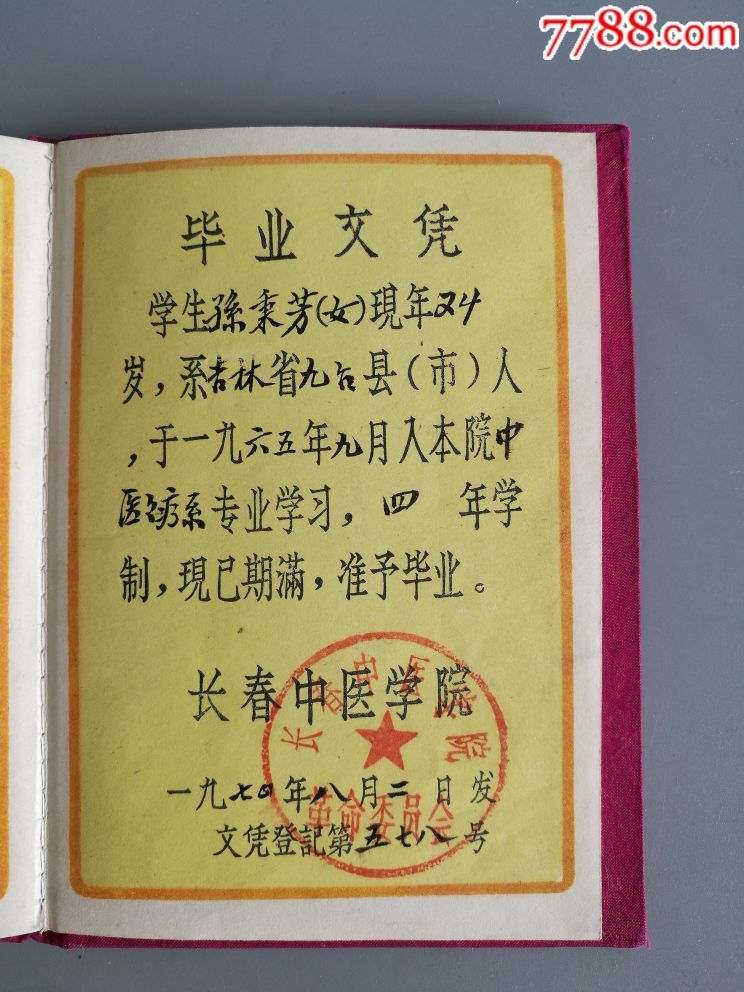 7788.com
毕业文凭
学生孫秉芳(女)現年24
岁，系吉林省九台县(市)人
，于一九六五年九月入本院中
医医疗系专业学习，四年学
制，現已期滿，准予毕业。
长春中医学院
长春中医学院
革命委员会
一九七〇年八月二日发
文凭登記第五七八号